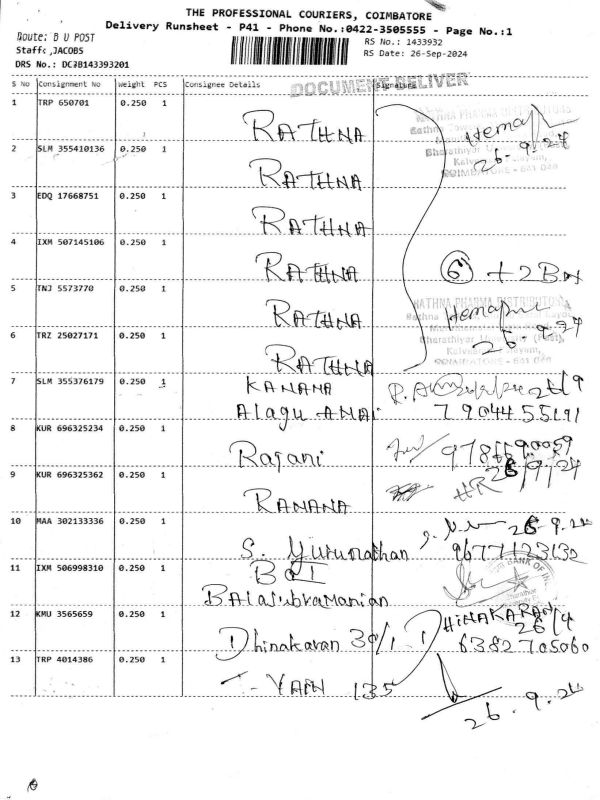 THE PROFESSIONAL COURIERS, COIMBATORE
Delivery Runsheet - P41 - Phone No.:0422-3505555 - Page No.:1
Route: B U POST
Staff: JACOBS
RS No.: 1433932
RS Date: 26-Sep-2024
DRS No.: DCBB143393201
DOCUMENT DELIVER
S No Consignment No Weight PCS Consignee Details Signature
1 TRP 650701 0.250 1 RATHNA
2 SLM 355410136 0.250 1 RATHNA 26.9.24
3 EDQ 17668751 0.250 1 RATHNA
4 IXM 507145106 0.250 1 RATHNA 6 + 2 Box
5 TNJ 5573770 0.250 1 RATHNA
RATHNA PHARMA DISTRIBUTORS
6 TRZ 25027171 0.250 1 RATHNA 26.9.24
7 SLM 355376179 0.250 1 KANANA 26/9
Alagu 7904455191
8 KUR 696325234 0.250 1 Ragani
9 KUR 696325362 0.250 1 RANANA 26/9/24
10 MAA 302133336 0.250 1 26.9.24
S. Gurunathan 9677123130
11 IXM 506998310 0.250 1 BOI
BALASUBRAMANIAN
12 KMU 3565659 0.250 1 Dhinakaran 30/1 DHINAKARAN
6382705060
13 TRP 4014386 0.250 1 135
26.9.24